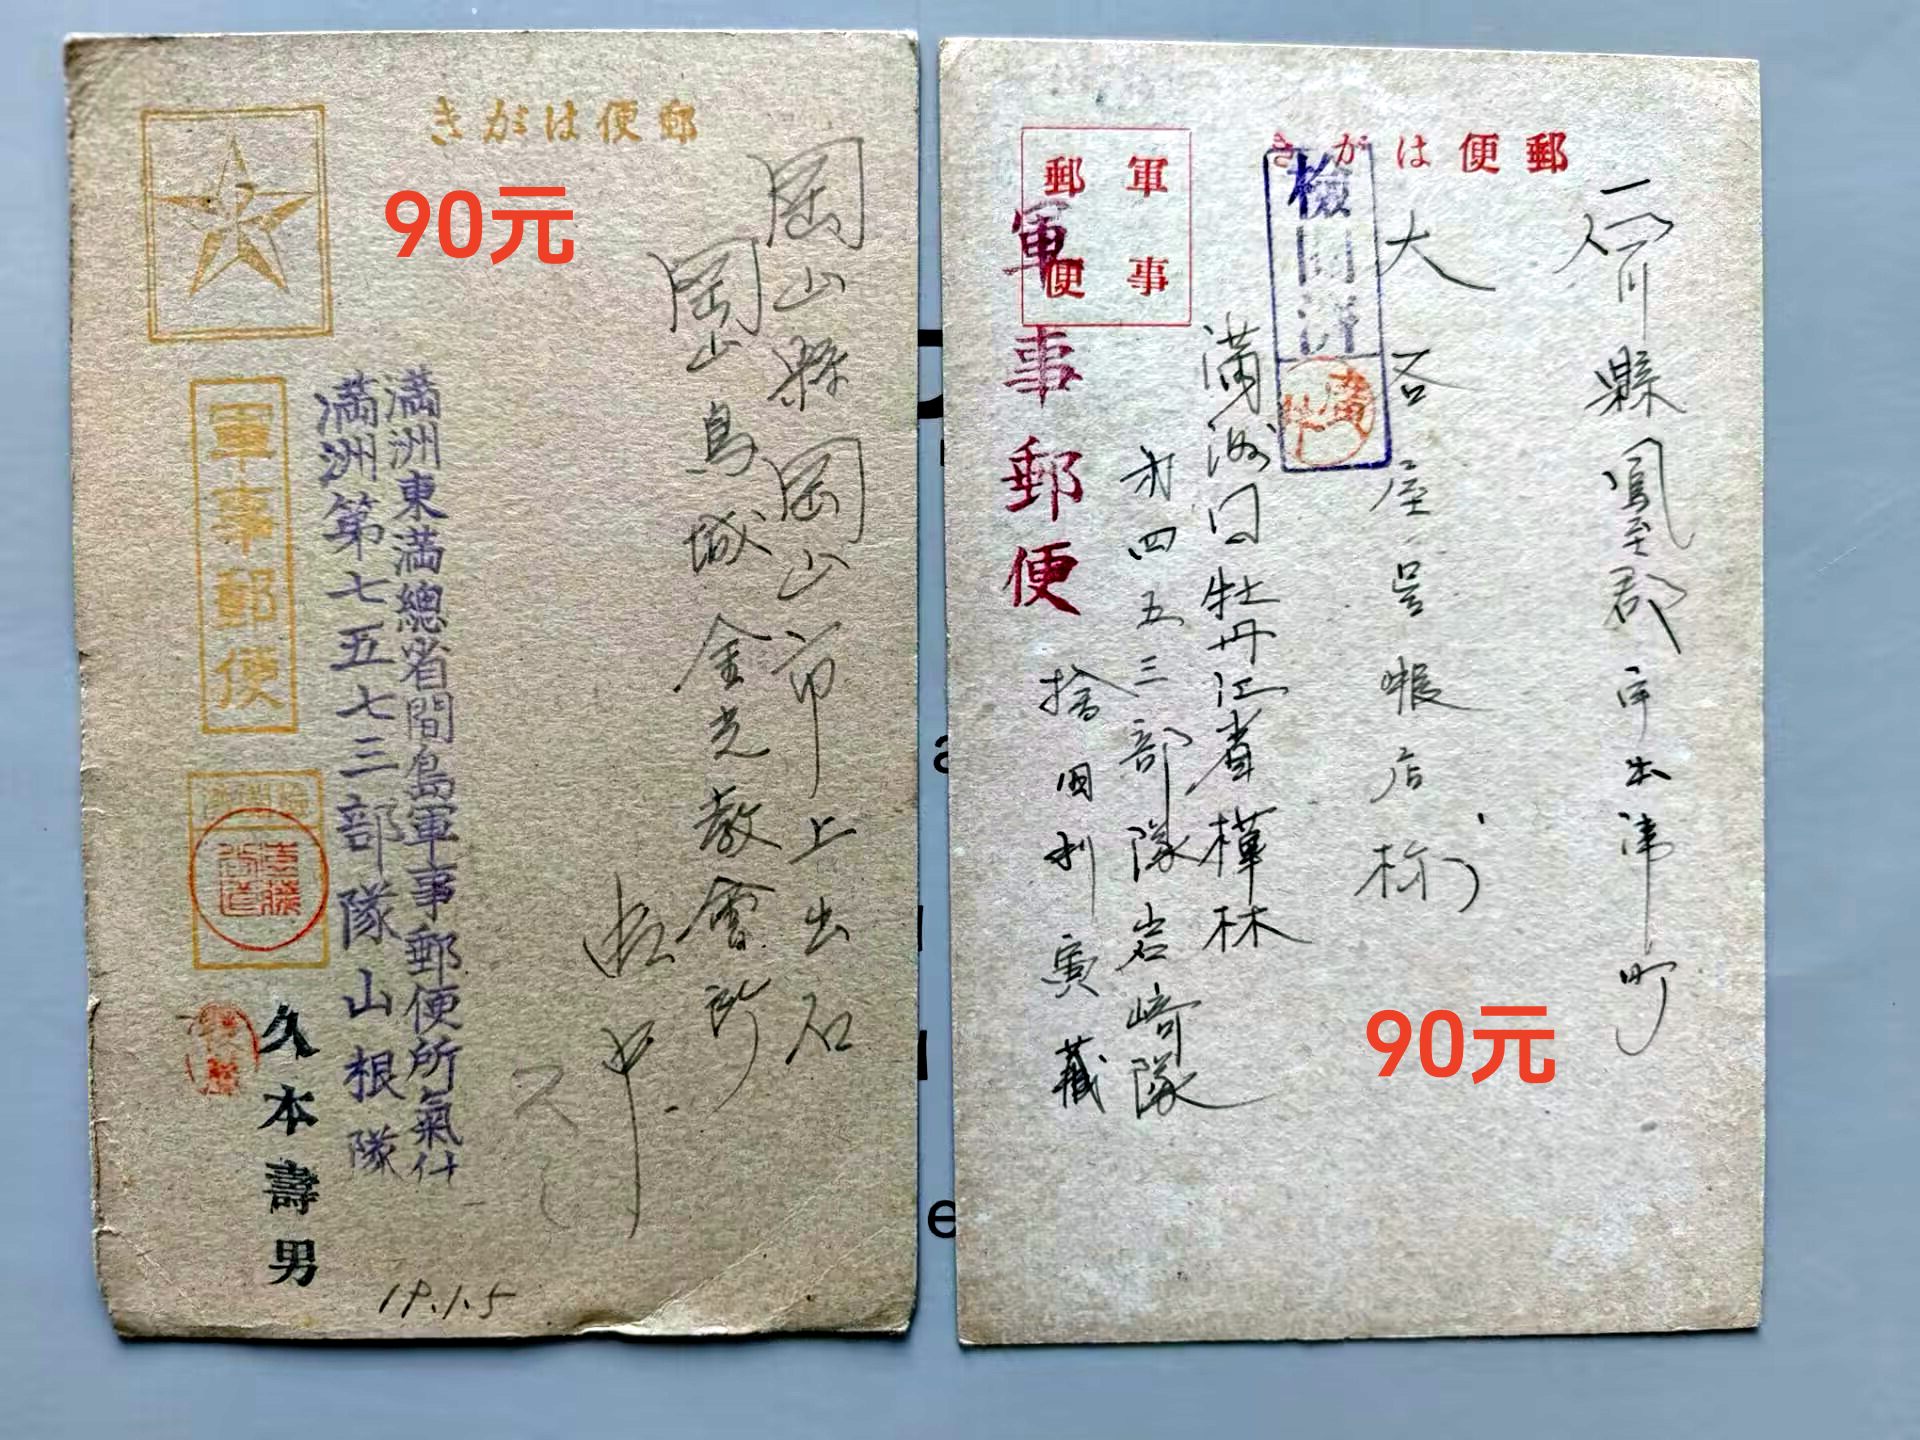 きがは便郵
90元
岡山縣岡山市上出石
岡山烏城金光教會所
御中
満洲東満總省間島軍事郵便所氣付
満洲第七五七三部隊山根隊
久本壽男
軍事郵便
19.1.5
きがは便郵
軍事
郵便
軍事郵便
検閲済
石川縣鳳至郡宇出津町
大谷座呉服店
満洲国牡丹江省樺林
第四五三部隊岩崎隊
90元